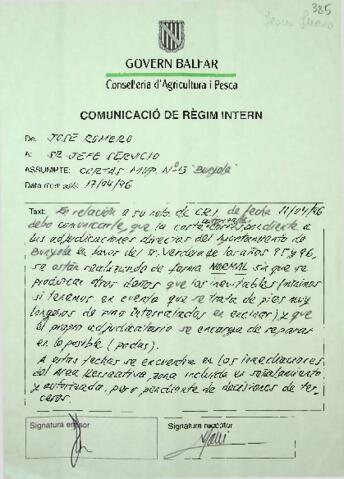 385
GOVERN BALEAR
Conselleria d'Agricultura i Pesca
COMUNICACIÓ DE RÈGIM INTERN
De: JOSÉ ROMERO
A: SR. JEFE SERVICIO
ASSUMPTE: CORTAS M.U.P. Nº 13 "Bunyola"
Data: 17/04/96
Text: En relación a su nota de C.R.I. de fecha 11/04/96
debo comunicarle, que la corta correspondiente a
las adjudicaciones directas del Ayuntamiento de
Bunyola a favor del Sr. Verdera de los años 95 y 96,
se están realizando de forma NORMAL sin que se
produzcan otros daños que los inevitables (mínimos
si tenemos en cuenta que se trata de pies muy
longevos de pino intercalados en encinar), y que
el propio adjudicatario se encarga de reparar
en lo posible (podas).
A estas fechas se encuentra en las inmediaciones
del Area Recreativa, zona incluida en señalamiento
y autorizada, pero pendiente de decisiones de ter-
ceros.
Signatura emissor
Signatura receptor